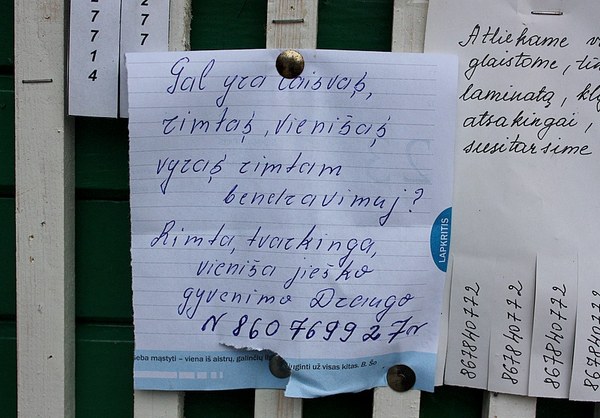 2 7 7 1 4
2 7 7
Gal yra laisvaş,
rimtaş, vienišaş
vyraş rimtam
bendravimuj?
Rimta, tvarkinga,
vieniša jieško
gyvenimo Draugo
N 860769927 N
LAPKRITIS
seba mąstyti – viena iš aistrų, galinčių
urginti už visas kitas. B. Šo
Atliekame
glaistome,
laminatą,
atsakingai,
susitarsime
867840772
867840772
867840772
867840772